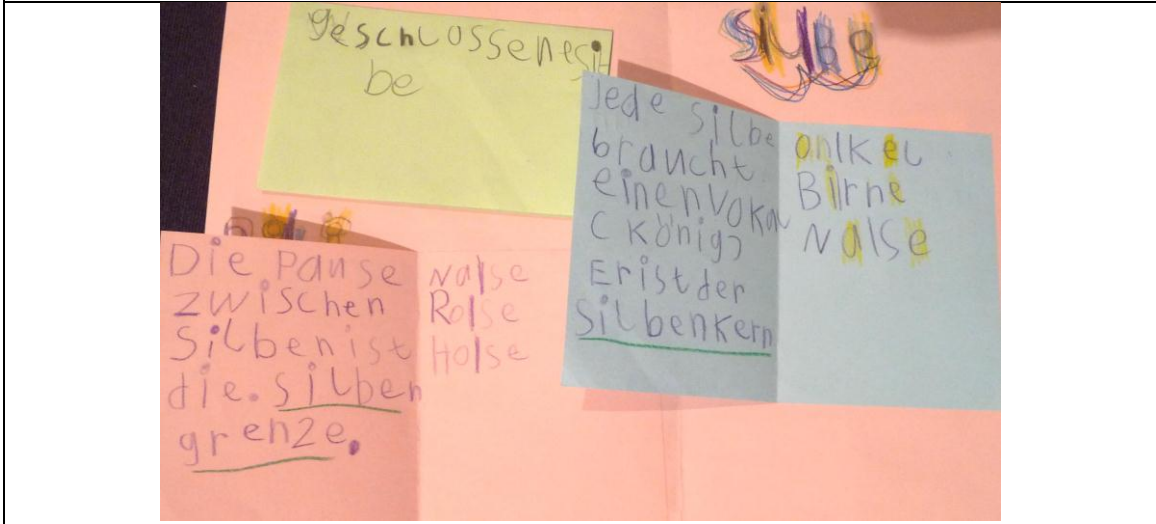 geschlossene si
be
SILBE
Jede Silbe
braucht
einen Vokal
(König)
Er ist der
Silbenkern
on|kel
Bir|ne
Na|se
Die Pause
zwischen
Silben ist
die. Silben
grenze.
Na|se
Ro|se
Ho|se